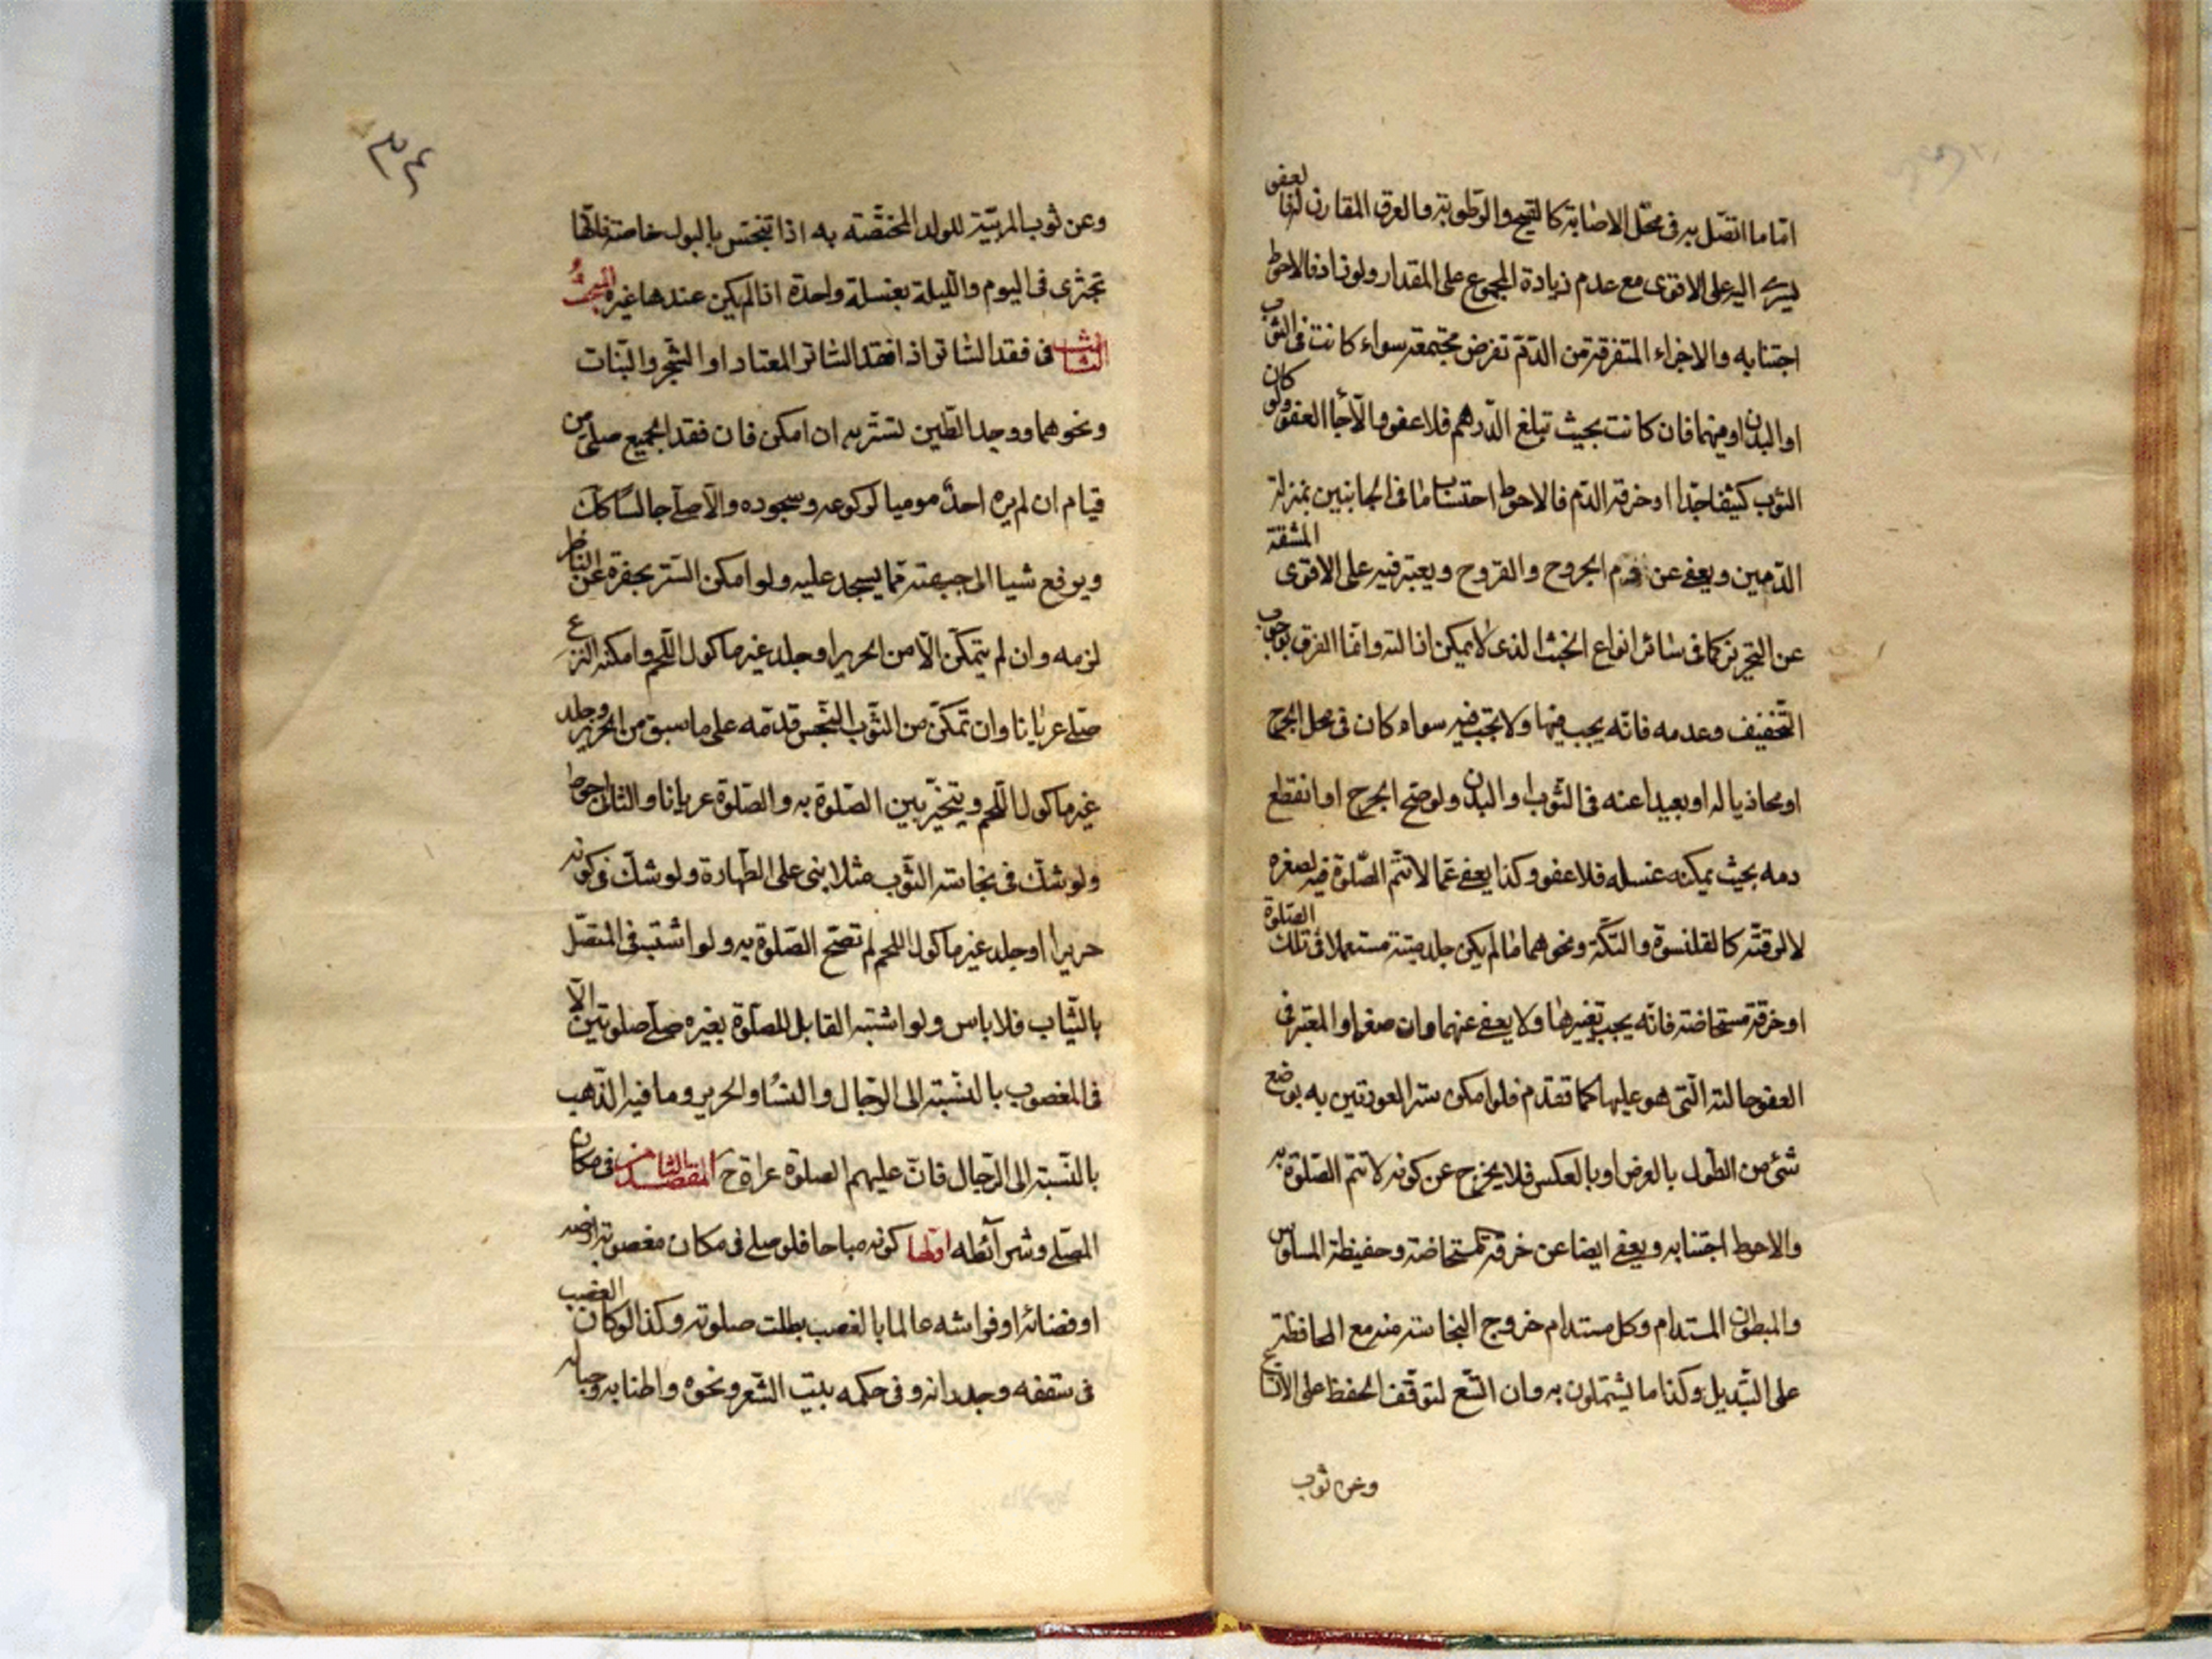 اما ما اتصل به فى محل الاصابة كالقيح والرطوبة والعرق المقارن لها فالعفو
يسرى اليه على الاقوى مع عدم زيادة المجموع على المقدار ولو زاد فالاحوط
اجتنابه والاجزاء المتفرقة من الدم تفرض مجتمعة سواء كانت فى الثوب
او البدن او منهما فان كانت بحيث تبلغ الدرهم فلا عفو والا جاء العفو ولو كان
الثوب كثيفا جدا او خرقه الدم فالاحوط احتساب ما فى الجانبين بمنزلة
الدمين ويعفى عن دم الجروح والقروح ويعتبر فيه على الاقوى المشقة
عن التحرز كما فى سائر انواع الخبث الذى لا يمكن ازالته وانما الفرق بوجوب
التخفيف وعدمه فانه يجب فيها ولا يجب فيه سواء كان فى محل الجرح
او محاذيا له او بعيدا عنه فى الثوب او البدن ولو صح الجرح او انقطع
دمه بحيث يمكنه غسله فلا عفو وكذا يعفى عما لا تتم الصلوة فيه لصغره
لا لرقته كالقلنسوة والتكة ونحوهما ما لم يكن جلد ميتة مستعملا فى تلك الصلوة
او خرقة مستحاضة فانه يجب تغييرها ولا يعفى عنهما وان صغرا والمعتبر فى
العفو حالته التى هو عليها كما تقدم فلو امكن ستر العورتين به بوضع
شئ من الطول بالعرض او بالعكس فلا يخرج عن كونه لا تتم الصلوة به
والاحوط اجتنابه ويعفى ايضا عن خرقة المستحاضة وحفيظة المسلوس
والمبطون المستدام وكل مستدام خروج النجاسة منه مع المحافظة
على التبديل وكذا ما يشتملون به وان اتسع لتوقف الحفظ على الاتساع
وعن ثوب
٣٤
وعن ثوب المربية للولد المختصة به اذا تنجس بالبول خاصة فانها
تجتزى فى اليوم والليلة بغسلة واحدة اذا لم يكن عندها غيره المبحث
الثالث فى فقد الساتر اذا فقد الساتر المعتاد او الشجر والنبات
ونحوهما ووجد الطين تستر به ان امكن فان فقد الجميع صلى من
قيام ان لم يره احد موميا لركوعه وسجوده والا صلى جالسا كك
ويرفع شيا الى جبهته مما يسجد عليه ولو امكن الستر بحفرة عن الناظر
لزمه وان لم يتمكن الا من الحرير او جلد غير ماكول اللحم وامكنه النزع
صلى عريانا وان تمكن من الثوب النجس قدمه على ما سبق من الحرير وجلد
غير ماكول اللحم ويتخير بين الصلوة به والصلوة عريانا والثانى احوط
ولو شك فى نجاسة الثوب مثلا بنى على الطهارة ولو شك فى كونه
حريرا او جلد غير ماكول اللحم لم تصح الصلوة به ولو اشتبه فى المتصل
بالثياب فلا باس ولو اشتبه القابل للصلوة بغيره صلى صلوتين الا
فى المغصوب بالنسبة الى الرجال والنساء والحرير وما فيه الذهب
بالنسبة الى الرجال فان عليهم الصلوة عراة ح المقصد الثامن فى مكان
المصلى وشرآئطه اولها كونه مباحا فلو صلى فى مكان مغصوبة ارضه
او فضائه او فراشه عالما بالغصب بطلت صلوته وكذا لو كان الغصب
فى سقفه وجدرانه وفى حكمه بيت الشعر ونحوه واطنابه وحباله